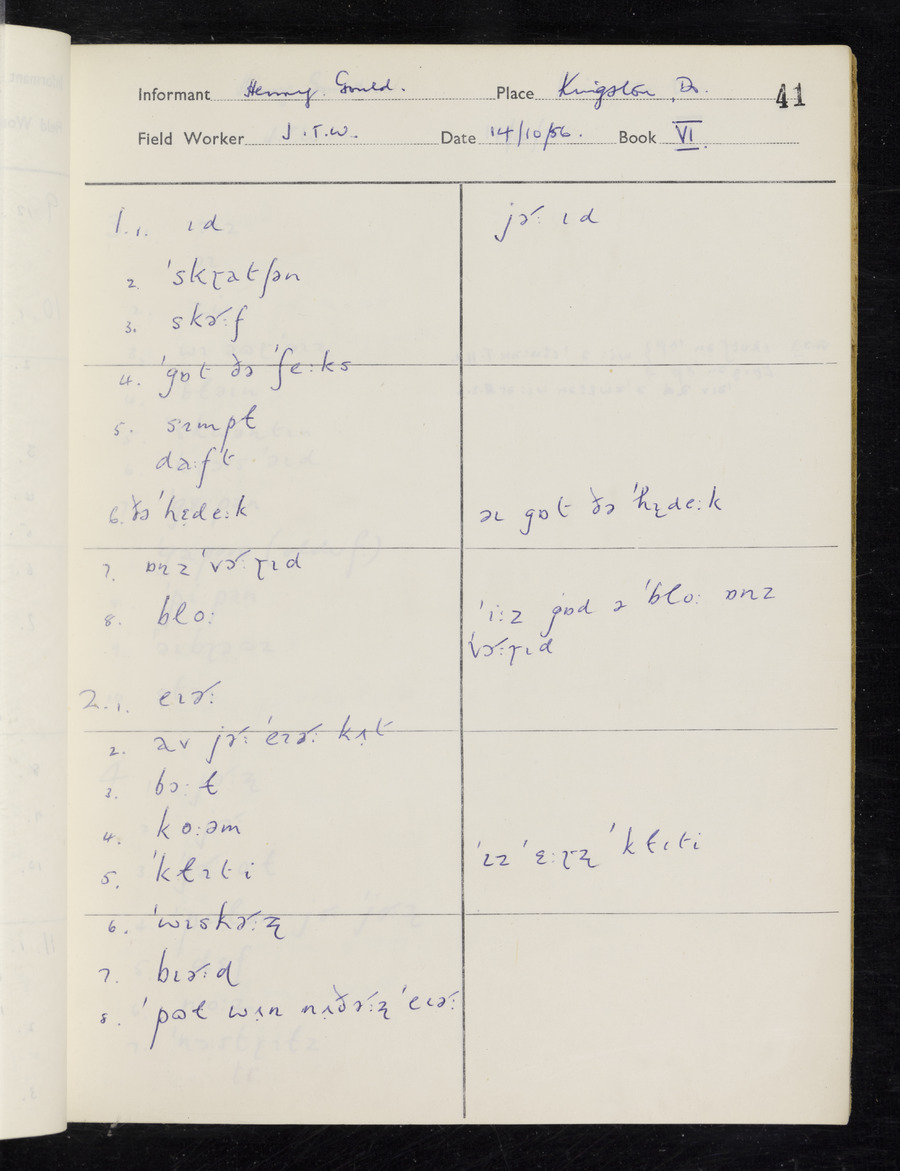 Informant Henry Gould. Place Kingston, Do. 41
Field Worker J.T.W. Date 14/10/56. Book VI.
1.1. ɪd
jɚː ɪd
2. ˈskɽatʃən
3. skɚːf
4. ˈgɒt ðə ˈfeːks
5. sɪmpɫ
daːft
6. ðə ˈhɛ̨deːk
əɪ gɒt ðə ˈhɛ̨deːk
7. ɒnz ˈvɚːɽɪd
8. bloː
ˈiːz gɒd ə ˈbloː ɒnz
ˈvɚːɽɪd
2.1. eɪɚː
2. av jɚː ˈeɪɚː kʌt
3. bɔːɫ
4. koːəm
5. ˈkɫɪti
ˈɪz ˈɛːɽz̨ ˈkɫɪti
6. ˈwɪskɚːz̨
7. bɪɚːd
8. ˈpʊɫ wʌn nʌðɚːz̨ ˈeɪɚː